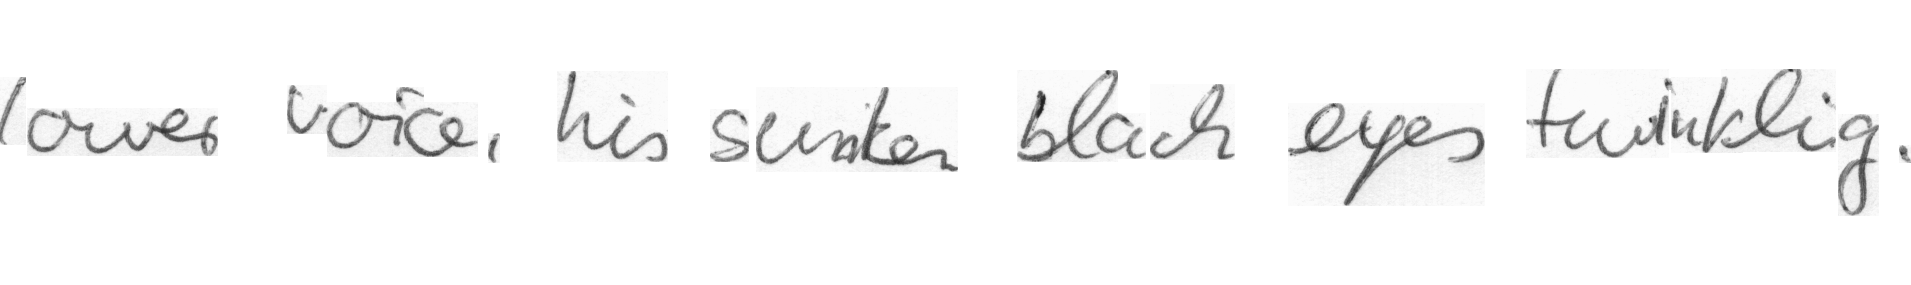 lower voice, his sunken black eyes twinklig.